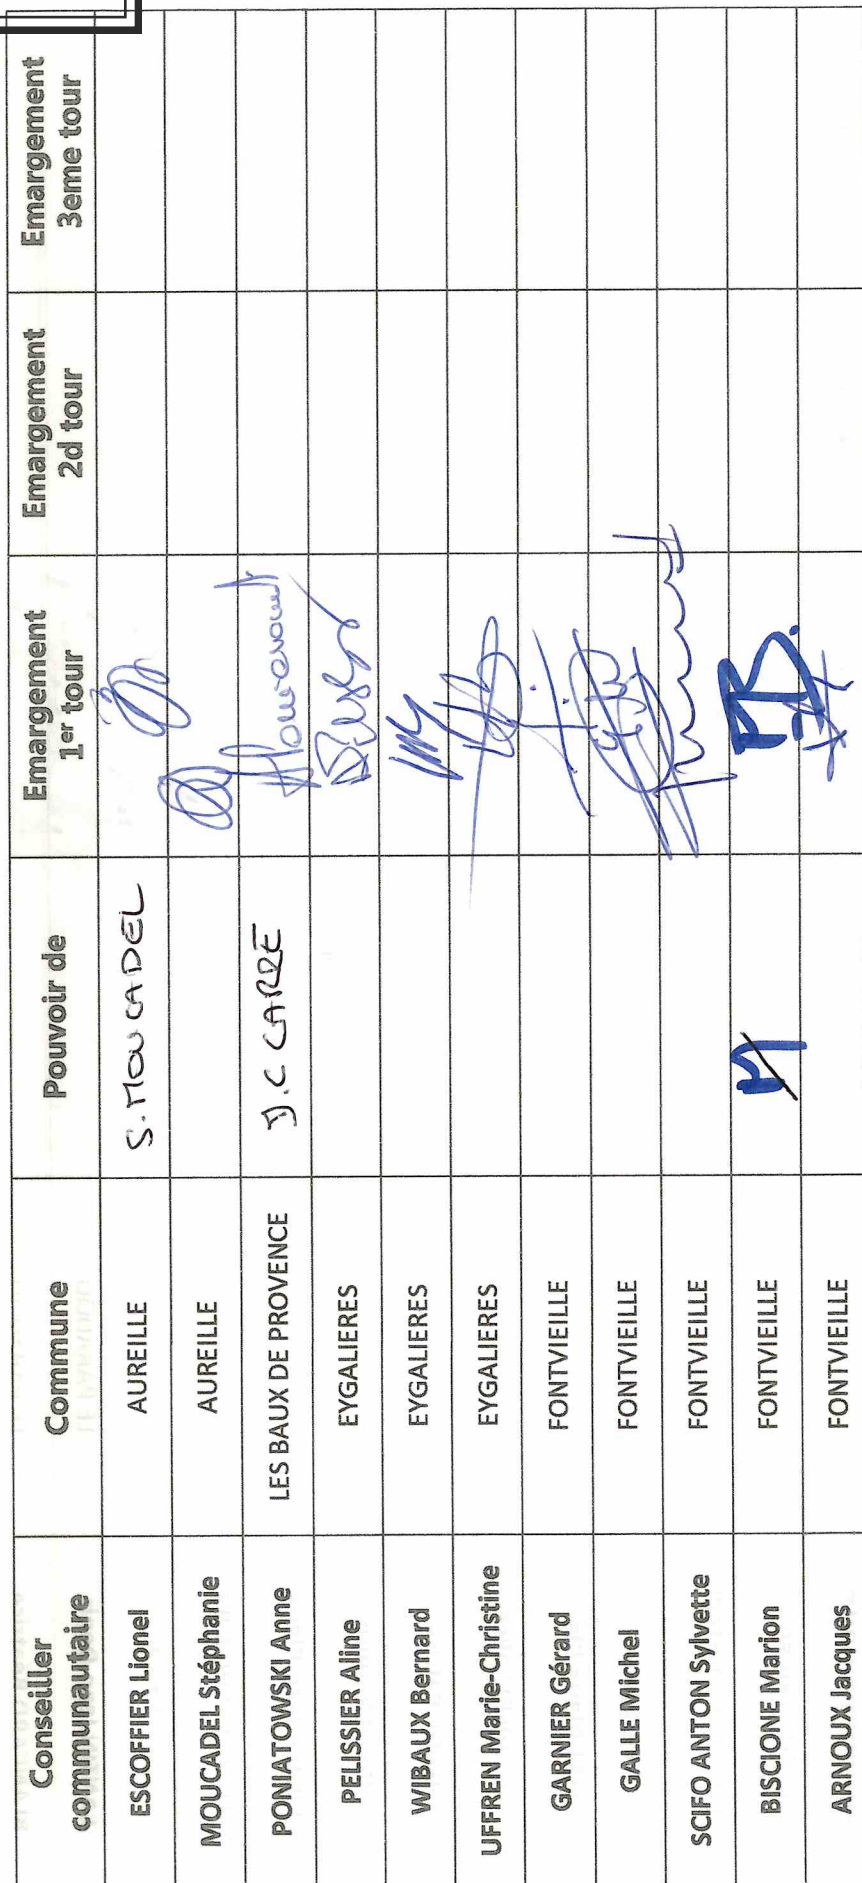 Conseiller communautaire Commune Pouvoir de Emargement 1er tour Emargement 2d tour Emargement 3eme tour
ESCOFFIER Lionel AUREILLE S. MOUCADEL
MOUCADEL Stéphanie AUREILLE
PONIATOWSKI Anne LES BAUX DE PROVENCE J.C CARRE
PELISSIER Aline EYGALIERES
WIBAUX Bernard EYGALIERES
UFFREN Marie-Christine EYGALIERES
GARNIER Gérard FONTVIEILLE
GALLE Michel FONTVIEILLE
SCIFO ANTON Sylvette FONTVIEILLE
BISCIONE Marion FONTVIEILLE
ARNOUX Jacques FONTVIEILLE